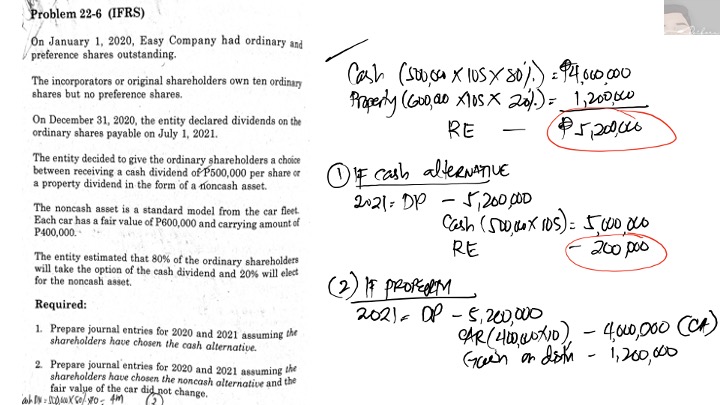 Problem 22-6 (IFRS)
On January 1, 2020, Easy Company had ordinary and
preference shares outstanding.
The incorporators or original shareholders own ten ordinary
shares but no preference shares.
On December 31, 2020, the entity declared dividends on the
ordinary shares payable on July 1, 2021.
The entity decided to give the ordinary shareholders a choice
between receiving a cash dividend of P500,000 per share or
a property dividend in the form of a noncash asset.
The noncash asset is a standard model from the car fleet.
Each car has a fair value of P600,000 and carrying amount of
P400,000.
The entity estimated that 80% of the ordinary shareholders
will take the option of the cash dividend and 20% will elect
for the noncash asset.
Required:
1. Prepare journal entries for 2020 and 2021 assuming the
shareholders have chosen the cash alternative.
2. Prepare journal entries for 2020 and 2021 assuming the
shareholders have chosen the noncash alternative and the
fair value of the car did not change.
Cash (500,000 X 10S X 80%) = ₱4,000,000
Property (600,000 X10S X 20%) = 1,200,000
RE — ₱5,200,000
(1) IF cash alteRNATIVE
2021= DP - 5,200,000
Cash (500,000 X 10S) = 5,000,000
RE - 200,000
(2) IF PROPERTY
2021= DP - 5,200,000
CAR (400,000X10) - 4,000,000 (CA)
Gain on distn - 1,200,000